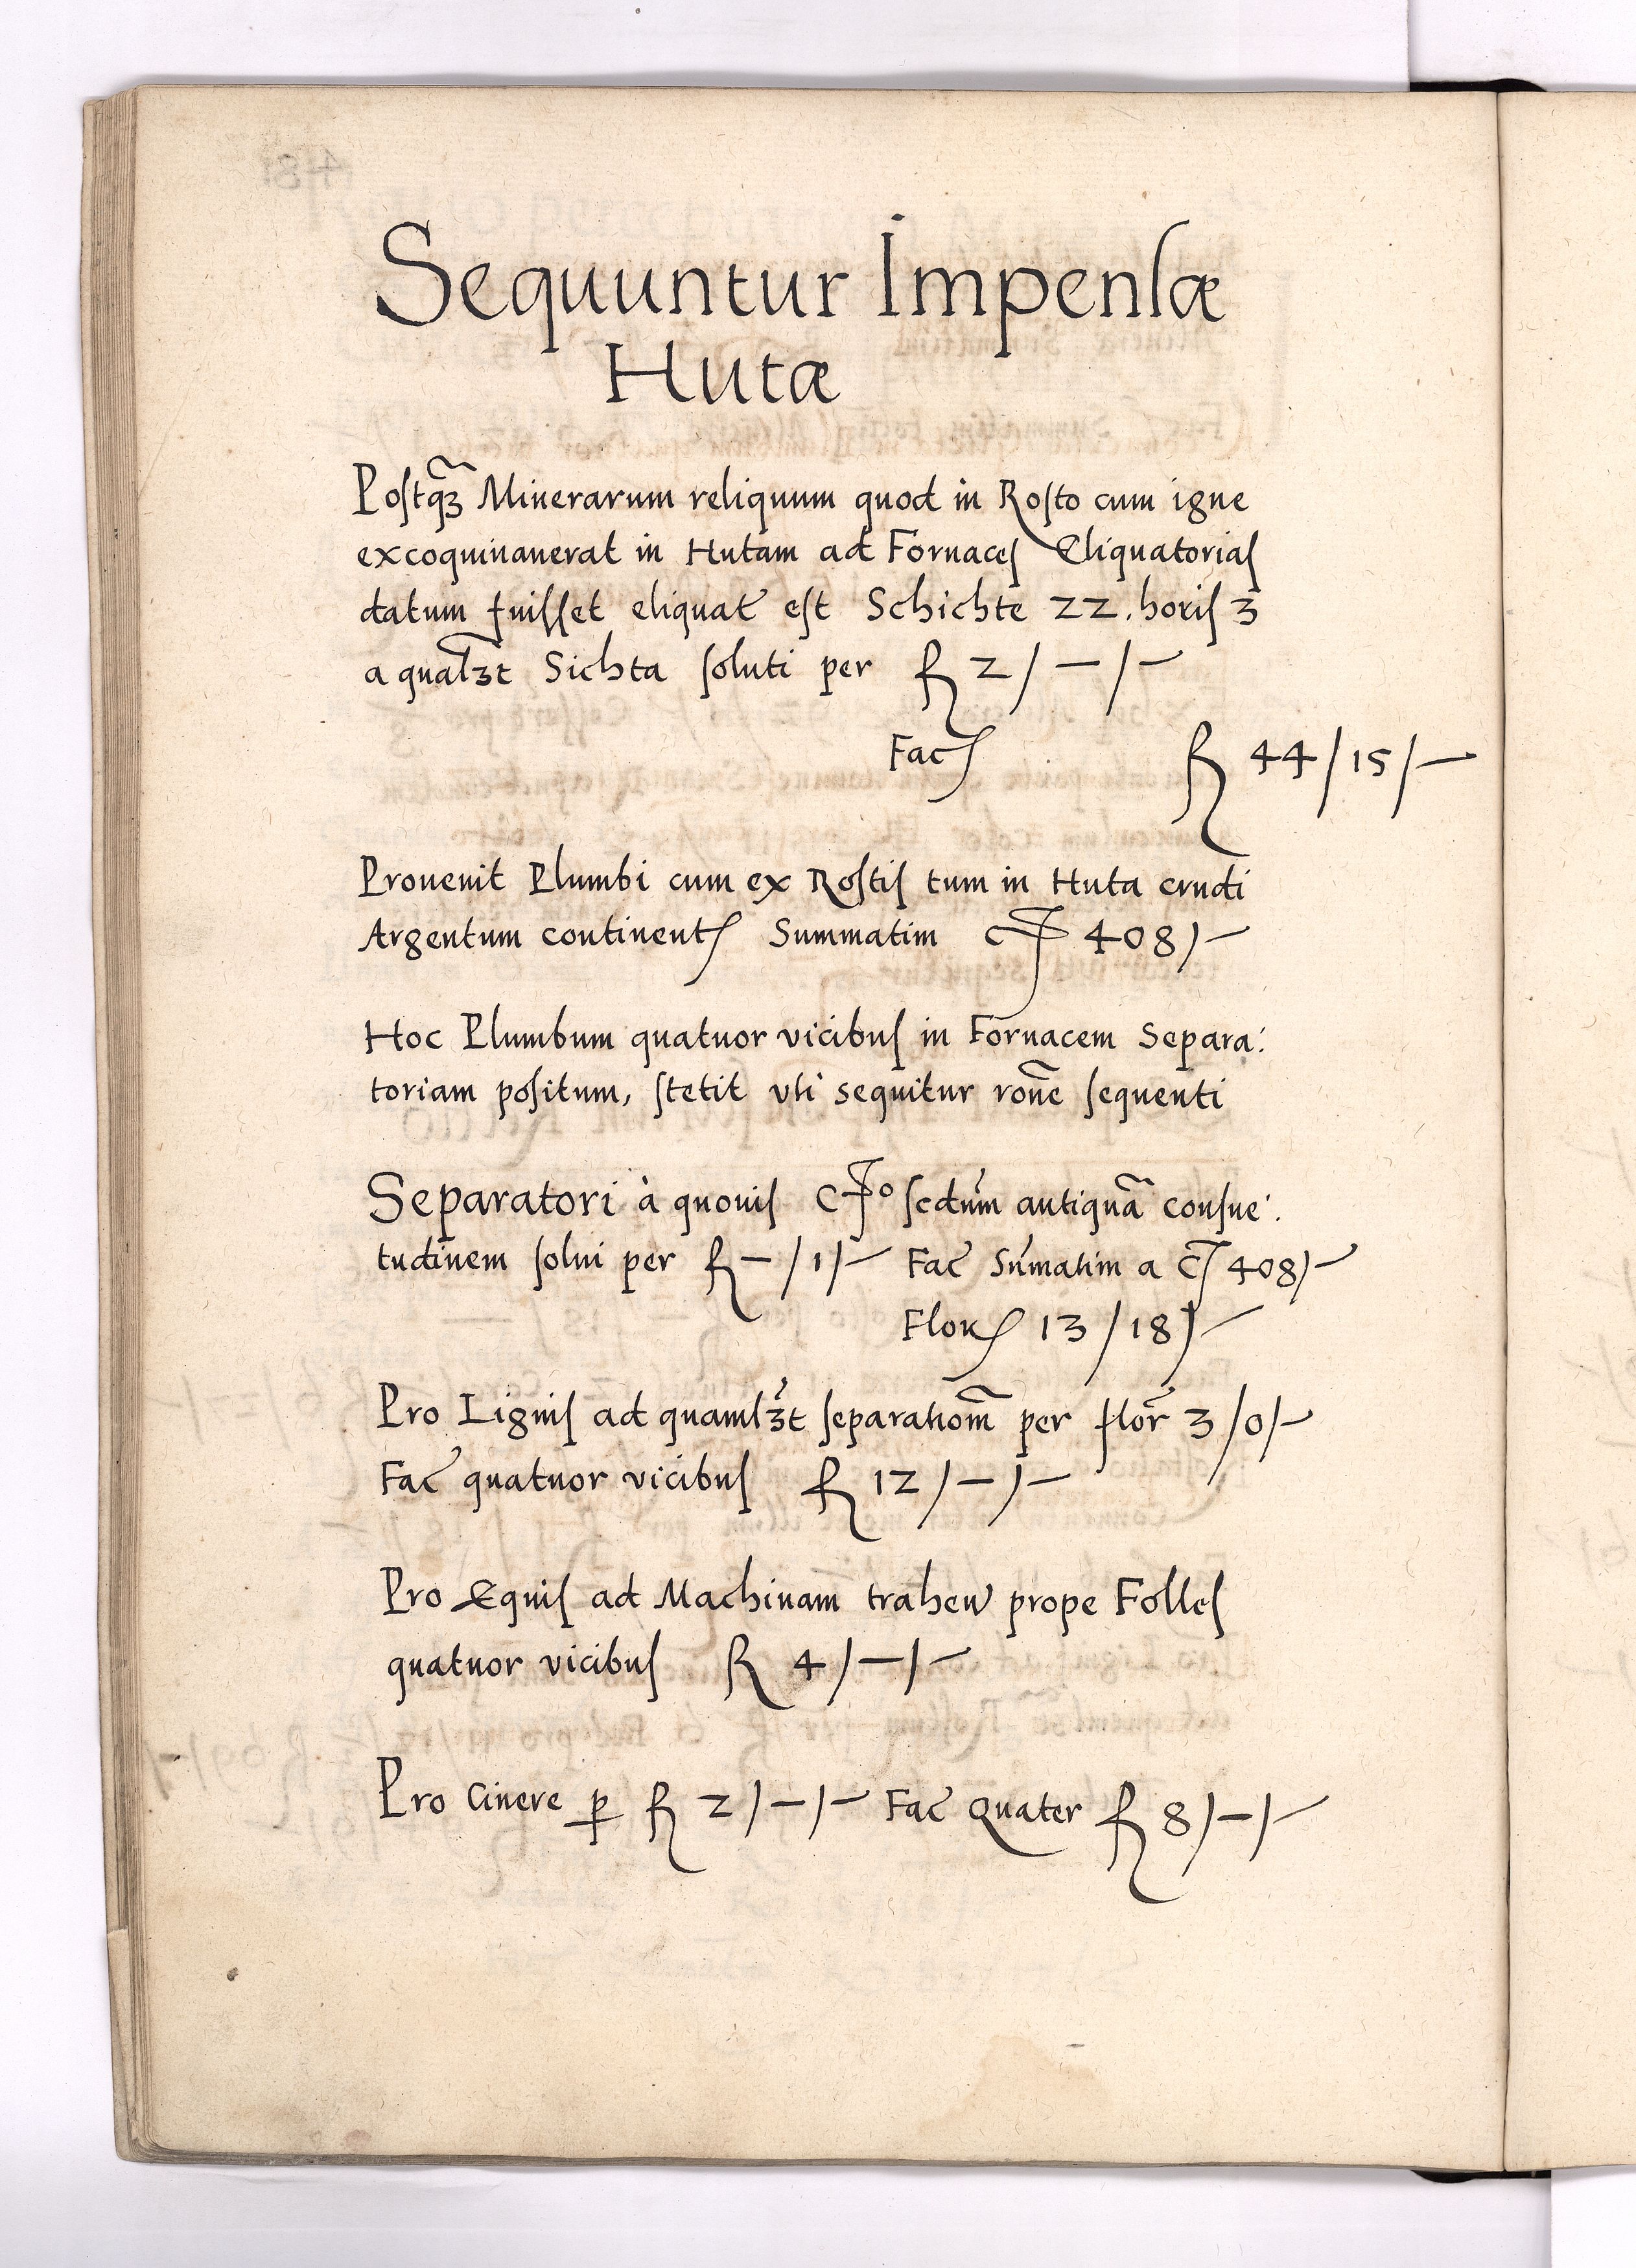 Sequuntur Impensæ
Hutæ
Postq̃ȝ Minerarum reliquum quod in Rosto cum igne
excoquinauerat in Hutam ad Fornaces Eliquatorias
datum fuisset eliquat̃ est Schichte 22. horis 3
a qualȝt Sichta soluti per R 2/—/—
Fac R 44/15/—
Prouenit Plumbi cum ex Rostis tum in Huta crudi
Argentum continent Summatim 408/—
Hoc Plumbum quatuor vicibus in Fornacem Separa:
toriam positum, stetit vti sequitur rõne sequenti
Separatori à quouis scdum antiquã consue:
tudinem solui per R —/1/— Fac Sumatim a 408/—
Flor 13/18/—
Pro Lignis ad quamlȝt separatiom̃ per flor̃ 3/0/—
Fac quatuor vicibus R 12/—/—
Pro Equis ad Machinam trahen prope Folles
quatuor vicibus R 4/—/—
Pro Cinere ꝑ R 2/—/— Fac Quater R 8/—/—